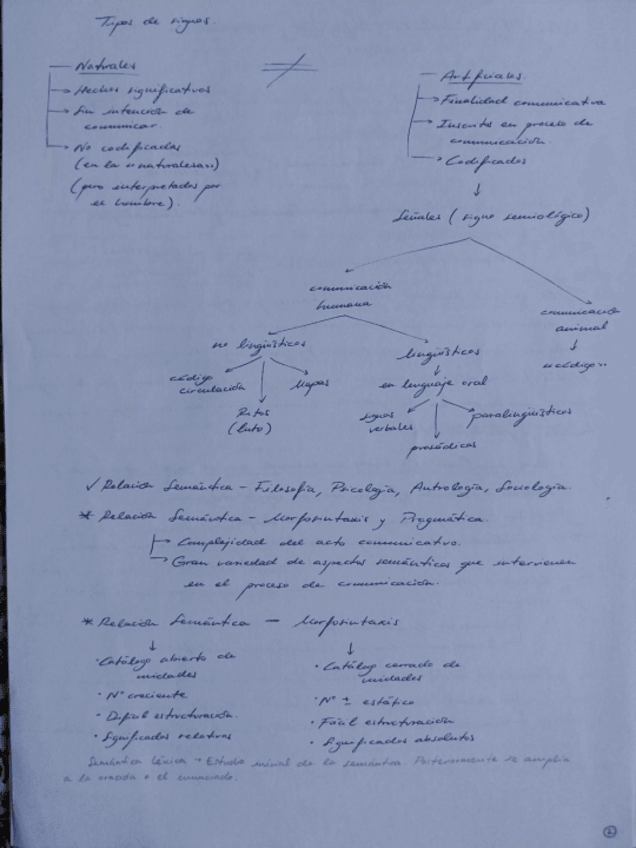 Tipos de signos.
Naturales
→ Hechos significativos
→ Sin intención de
comunicar.
→ No codificados
(en la "naturaleza")
(pero interpretados por
el hombre).
≠
Artificiales.
→ Finalidad comunicativa
→ Insertos en proceso de
comunicación.
→ Codificados
↓
Señales (signo semiológico)
comunicación
humana
comunicación
animal
↓
"código"
no lingüísticos
código
circulación
Ritos
(luto)
Mapas
lingüísticos
↓
en lenguaje oral
signos
verbales
prosódicos
paralingüísticos
✓ Relación Semántica – Filosofía, Psicología, Antrología, Sociología.
* Relación Semántica – Morfosintaxis y Pragmática.
→ Complejidad del acto comunicativo.
→ Gran variedad de aspectos semánticos que intervienen
en el proceso de comunicación.
* Relación Semántica — Morfosintaxis
↓
· Catálogo abierto de
unidades
· Nº creciente
· Difícil estructuración.
· Significados relativos
↓
· Catálogo cerrado de
unidades
· Nº ± estático
· Fácil estructuración
· Significados absolutos
Semántica léxica → Estudio inicial de la semántica. Posteriormente se amplía
a la oración o el enunciado.
2